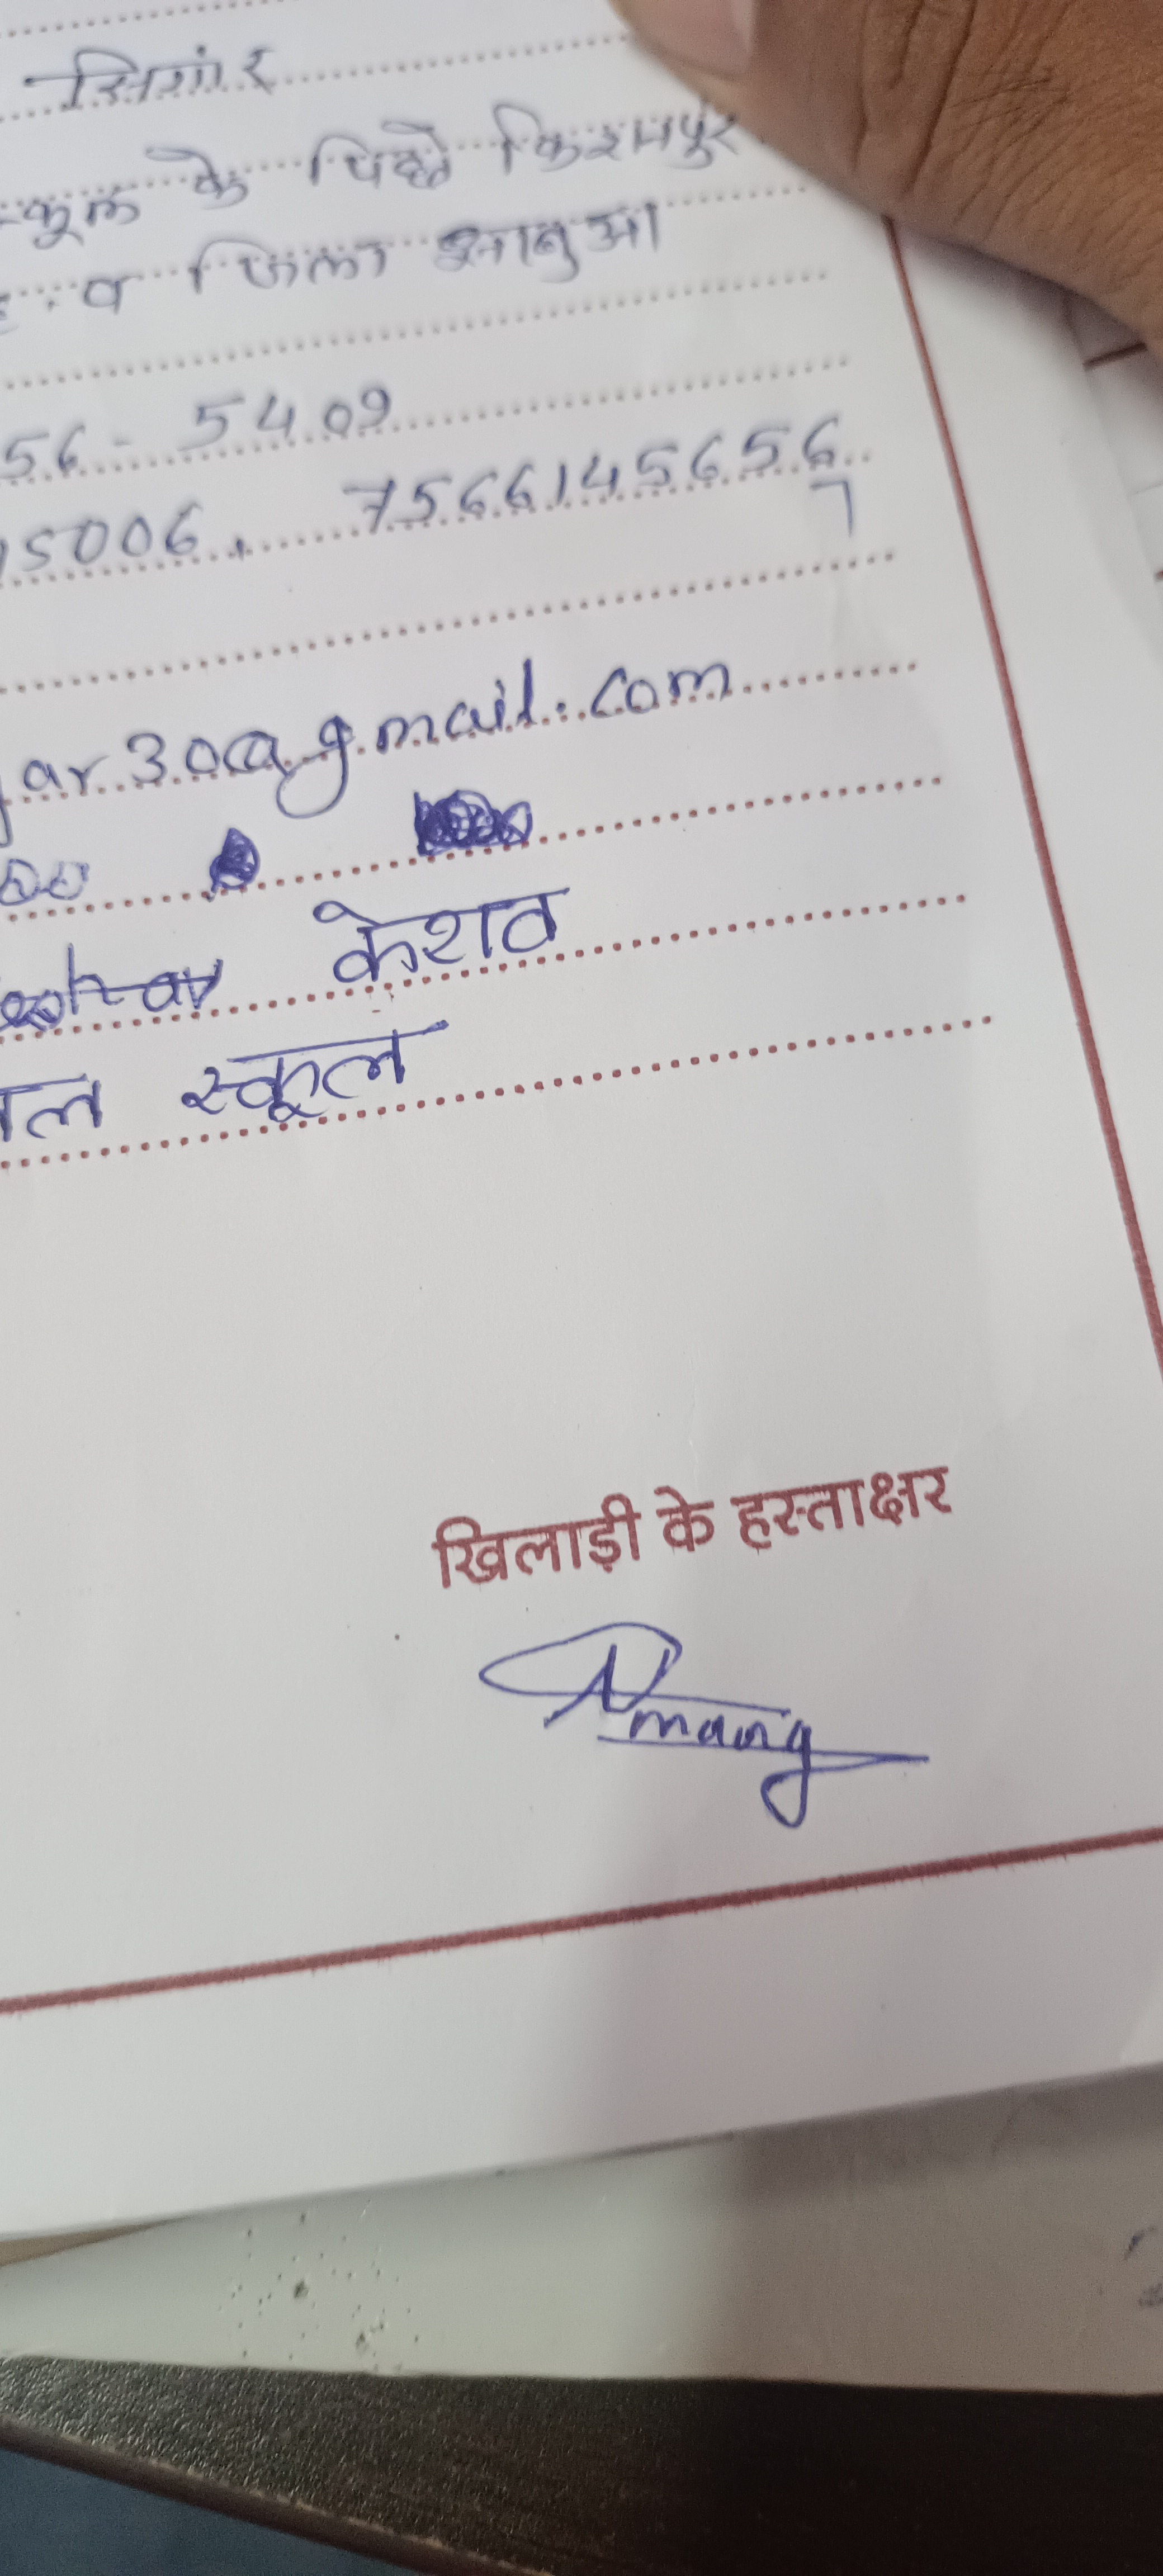 सिगांर
स्कूल के पिछे किशनपुरी
व जिला झाबुआ
56 - 5409
15006, 7566145656
7
ar300@gmail.com
केशव
स्कूल
खिलाड़ी के हस्ताक्षर
Umang